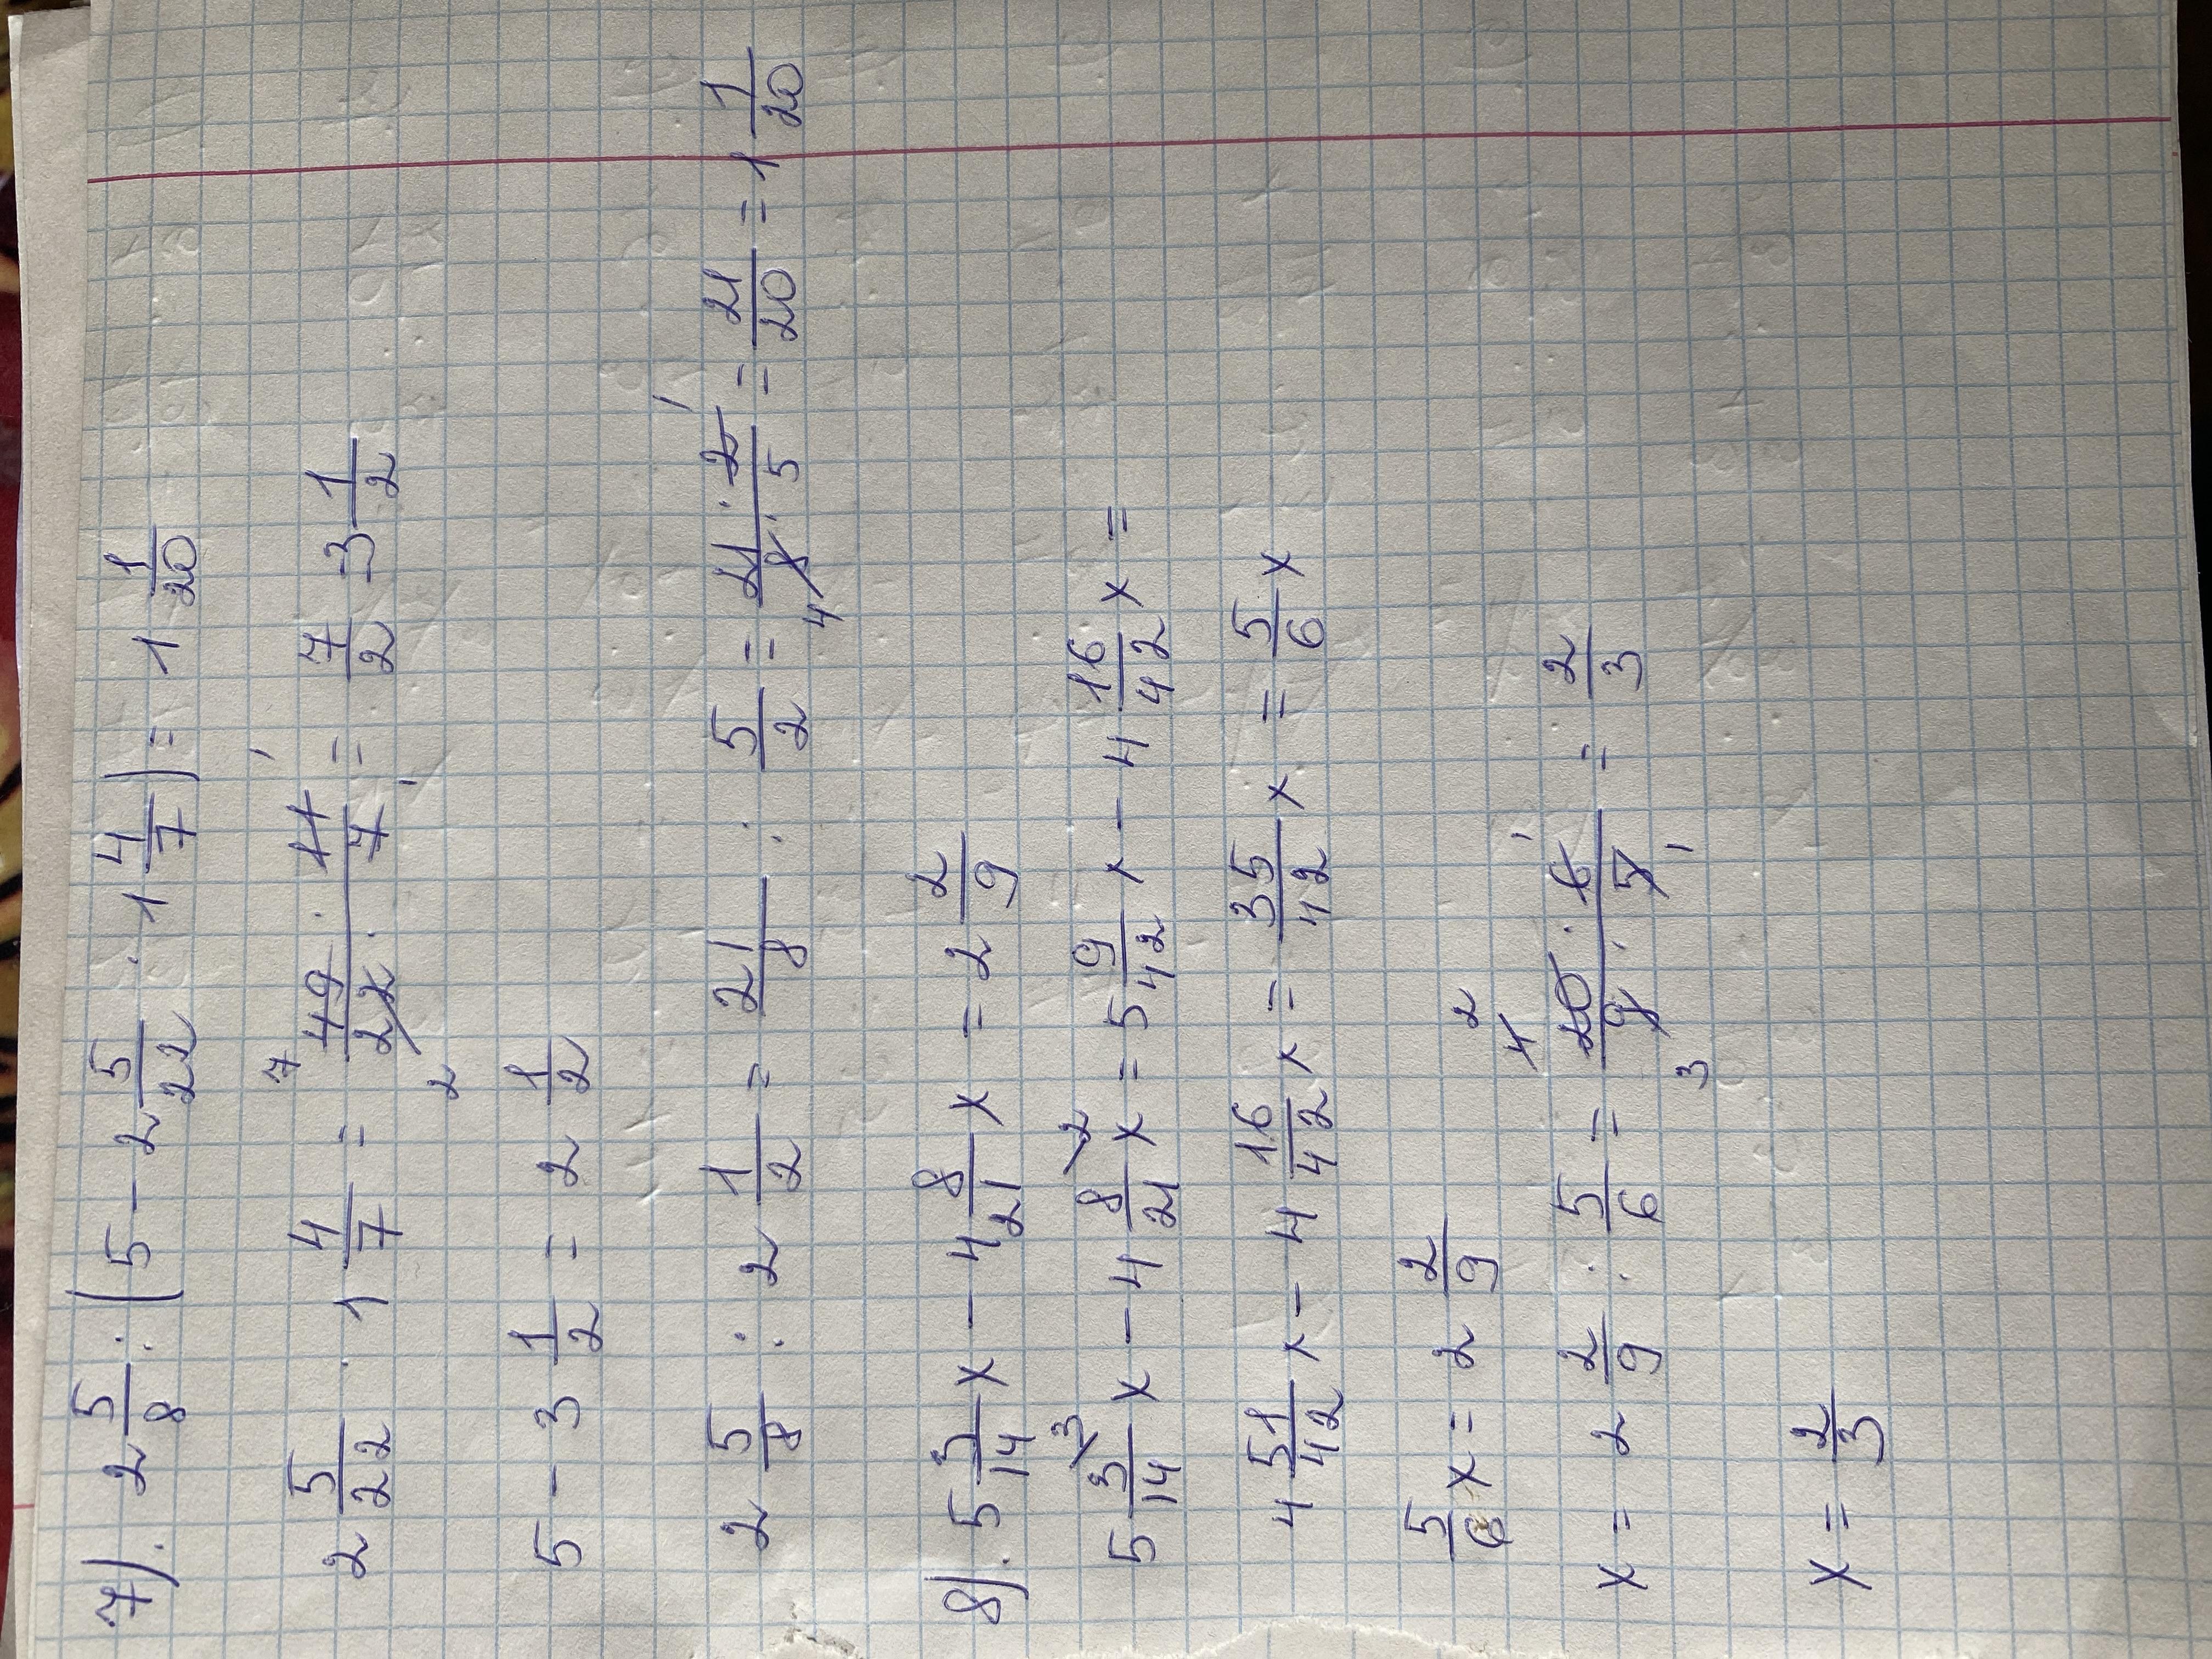 7). 2 5/8 : (5 - 2 5/22 · 1 4/7) = 1 1/20
2 5/22 · 1 4/7 = 49 · 11 / 22 · 7 = 7/2 = 3 1/2
5 - 3 1/2 = 2 1/2
2 5/8 : 2 1/2 = 21/8 : 5/2 = 21 · 2 / 8 · 5 = 21/20 = 1 1/20
8). 5 3/14 x - 4 8/21 x = 2 2/9
5 3/14 x - 4 8/21 x = 5 9/42 x - 4 16/42 x =
4 51/42 x - 4 16/42 x = 35/42 x = 5/6 x
5/6 x = 2 2/9
x = 2 2/9 : 5/6 = 20 · 6 / 9 · 5 = 2/3
x = 2/3